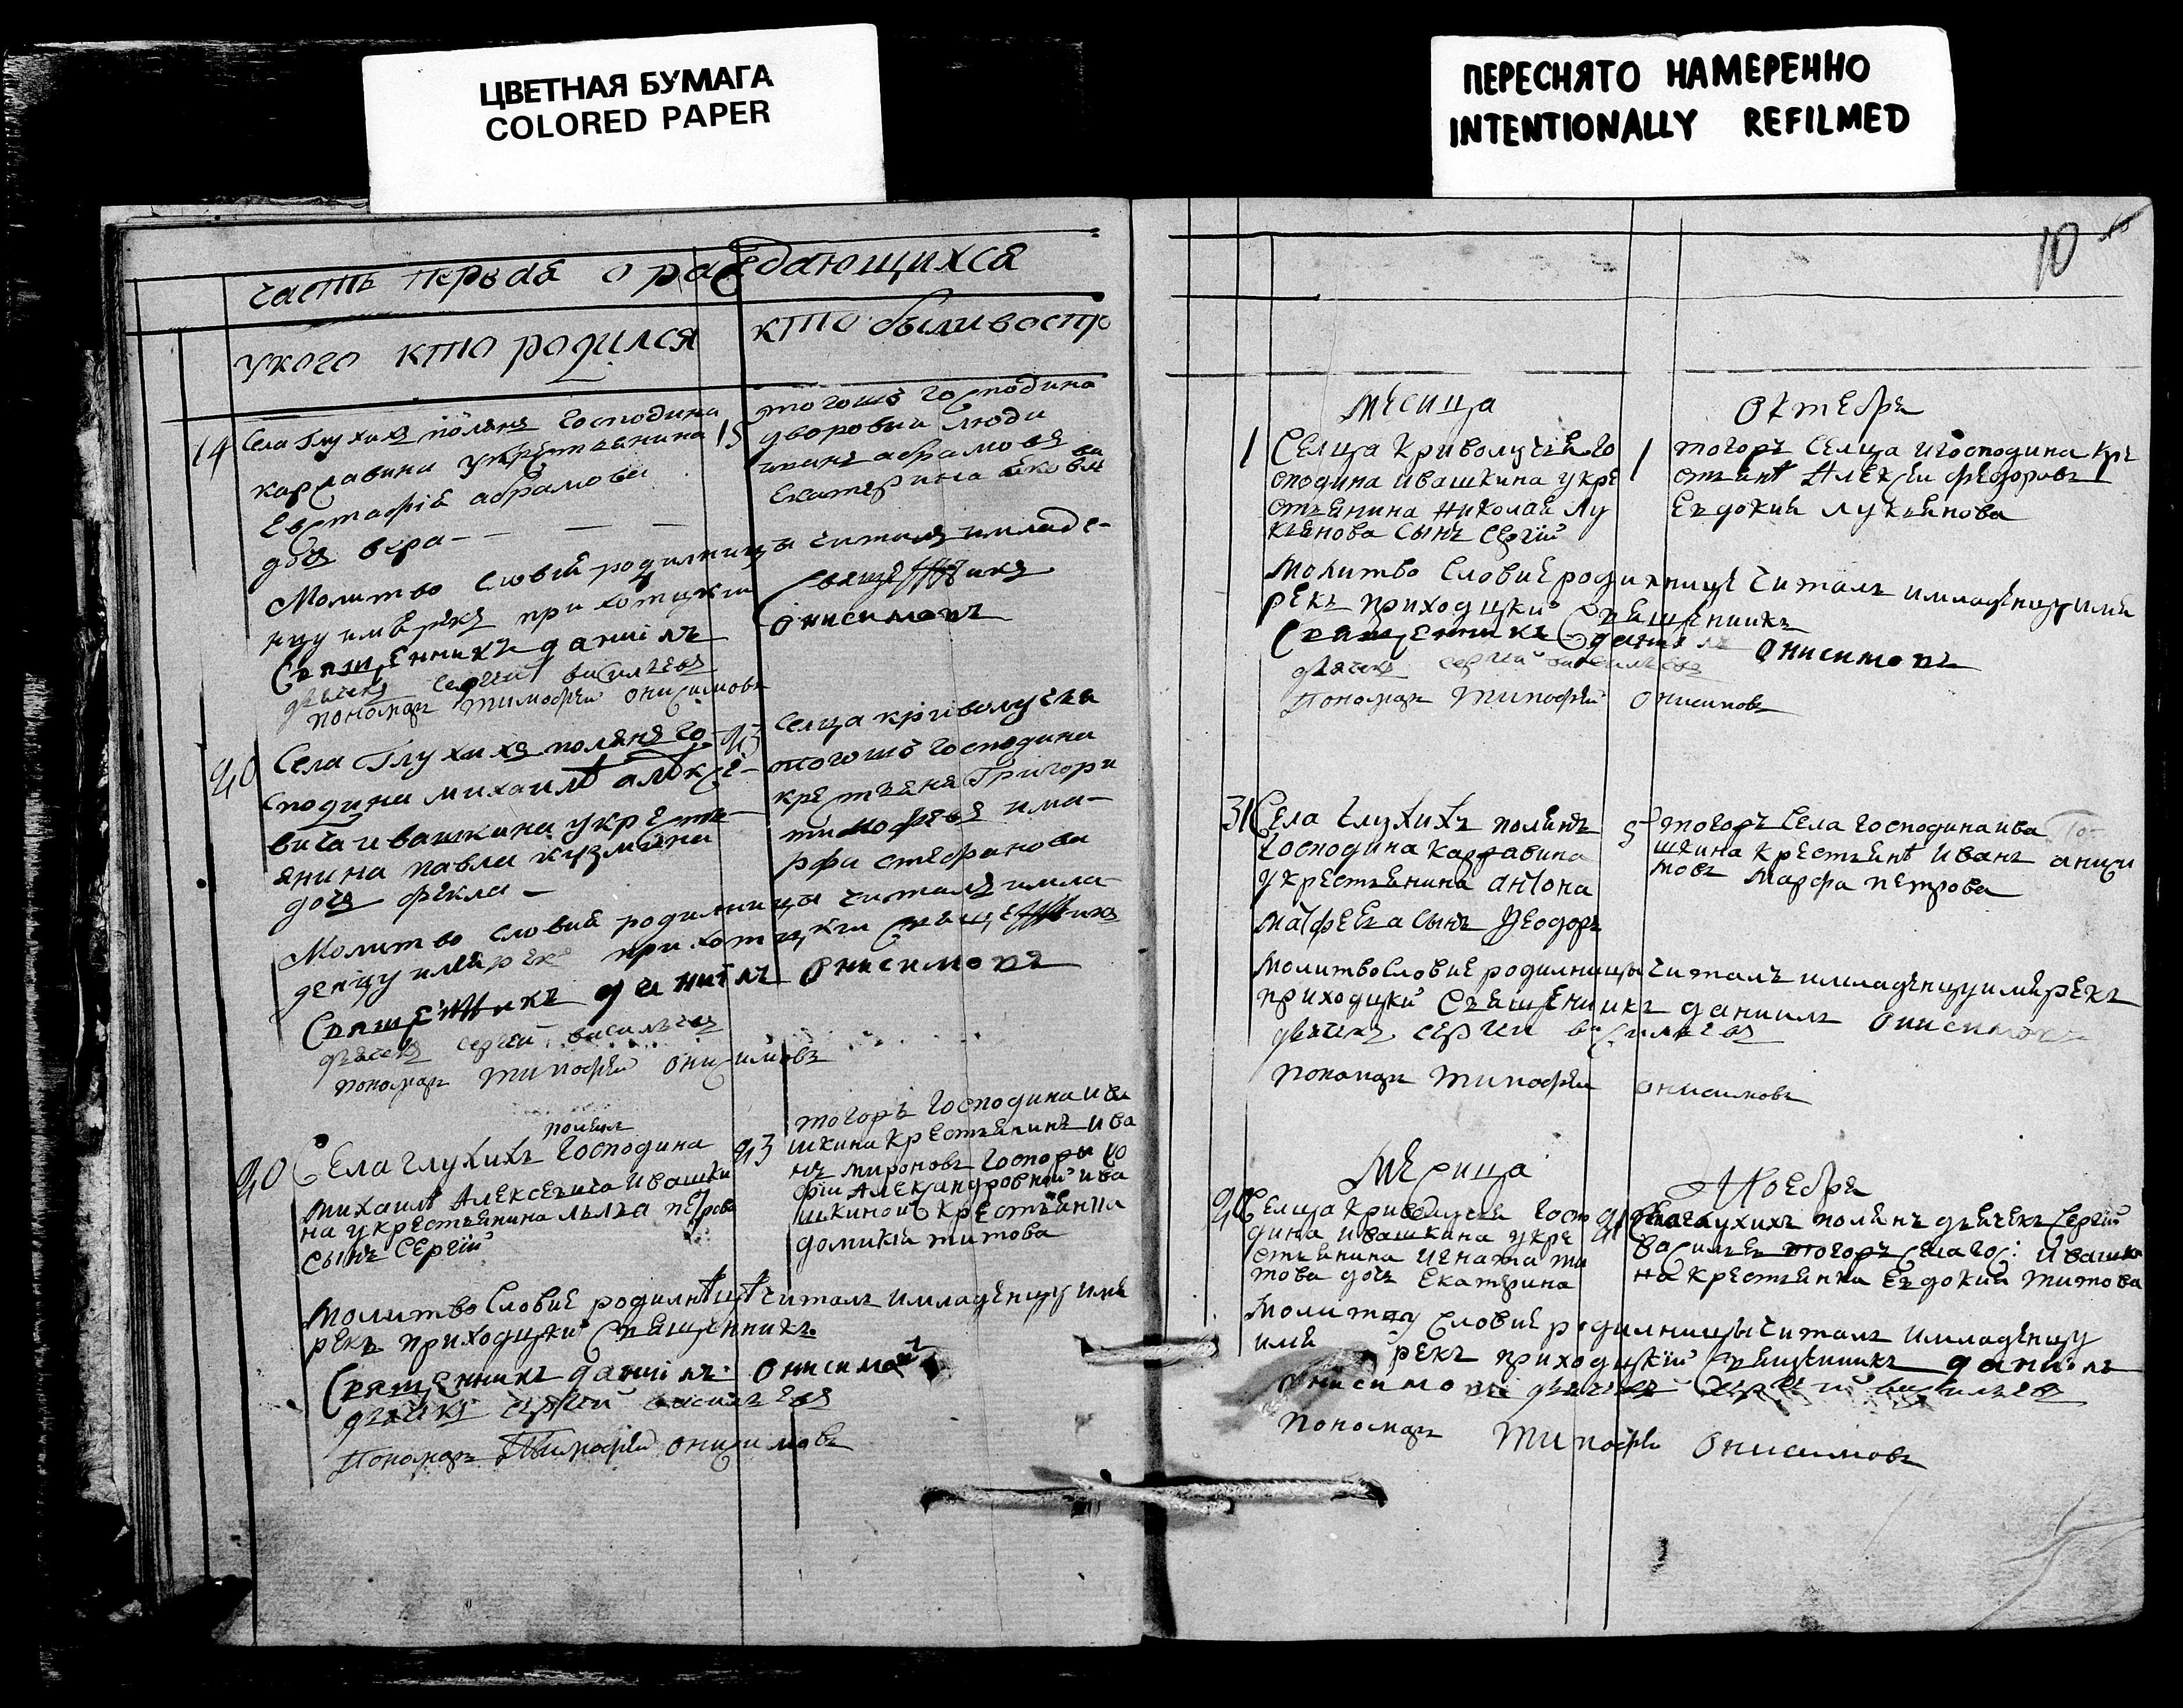 ЦВЕТНАЯ БУМАГА
COLORED PAPER
ПЕРЕСНЯТО НАМЕРЕННО
INTENTIONALLY REFILMED
10
часть первая о раждающихся
у кого кто родился
кто были воспр
14 Села Глухихъ полянъ господина
Карлавина у крестьянина
Евстафiя абрамова
дочь вера
15 тогожъ господина
дворовыя люди
иванъ абрамовъ
Екатерина
Молитвословiе родилницы читалъ и младе-
нцу имя рекъ приходцкiи священникъ
Священникъ данiилъ Онисимовъ
дьячекъ сергей васильевъ
пономарь тимофей онисимовъ
20 Села Глухихъ полянъ го-
сподина михаила алексе-
вича ивашкина у кресть-
янина павла кузмина
дочь фекла
23 селца криволучья
тогожъ господина
крестьянъ Григори
тимофеевъ и ма-
рфа стефанова
Молитвословiе родилницы читалъ и мла-
денцу имя рекъ приходцкiи священникъ
Священникъ данiилъ Онисимовъ
дьячекъ сергей васильевъ
пономарь тимофей онисимовъ
полянъ
20 Села глухихъ господина
михаила Алексеевича ивашки
на у крестьянина льва петрова
сынъ Сергiй
23 тогоръ господина ива
шкина крестьянинъ ива
нъ мироновъ госпожи со
фiи Александровной ива
шкиной крестьянка
домикiя титова
молитвословiе родилницы читалъ и младенцу имя
рекъ приходцкiй священникъ
Священникъ данiилъ Онисимовъ
дьячекъ сергей васильевъ
Пономарь Тимофей онисимовъ
месица Октебря
1 Селца Криволучья го
сподина ивашкина у кре
стьянина николая лу
кьянова сынъ сергiй
1 тогоръ селца и господина кре
стьянъ Алексеи федоровъ
Евдокия лукьянова
Молитвословiе родилнице читалъ и младенцу имя
рекъ приходцкiй священникъ
Священникъ данiилъ Онисимовъ
дьячекъ сергей васильевъ
Пономарь Тимофей онисимовъ
31 Села глухихъ полянъ
господина Карлавина
у крестьянина антона
матфеева сынъ Феодоръ
5 тогоръ села господина ива
шкина крестьянъ иванъ аниси
мовъ марфа петрова
молитвословiе родилницы читалъ и младенцу имя рекъ
приходцкiй священникъ данiилъ Онисимовъ
дьячекъ сергей васильевъ
пономарь тимофеи онисимовъ
месица Ноебря
20 Селца Криволучья госпо
дина ивашкина у кре
стьянина игната ти
това дочь Екатерина
21 села глухихъ полянъ дьячекъ сергiй
васильевъ тогоръ села гос: ивашки
на крестьянка Евдокия титова
молитвословiе родилницы читалъ и младенцу
имя рекъ приходцкiй священникъ данiилъ
Онисимовъ дьячекъ сергей васильевъ
пономарь тимофей Онисимовъ